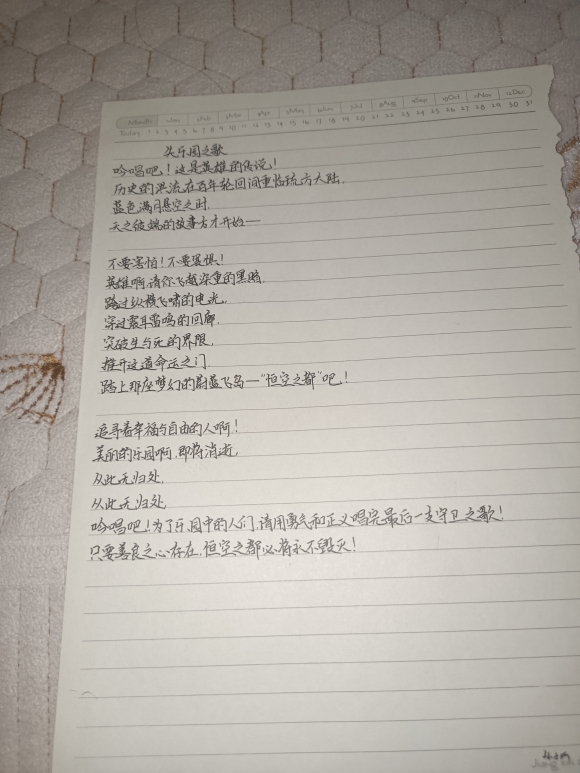 Today 1 2 3 4 5 6 7 8 9 10 11 12 13 14 15 16 17 18 19 20 21 22 23 24 25 26 27 28 29 30 31
失乐园之歌
吟唱吧！这是英雄的传说！
历史的洪流在百年轮回间重临琉方大陆，
蓝色满月悬空之时，
天之彼端的故事方才开始——
不要害怕！不要畏惧！
英雄啊，请你飞越深重的黑暗，
踏过纵横飞啸的电光，
穿过震耳雷鸣的回廊，
突破生与死的界限，
推开这道命运之门
踏上那座梦幻的蔚蓝飞岛——“恒空之都”吧！
追寻着幸福与自由的人啊！
美丽的乐园啊，即将消逝，
从此无归处，
从此无归处，
吟唱吧！为了乐园中的人们，请用勇气和正义唱完最后一支守卫之歌！
只要善良之心存在，恒空之都必将永不毁灭！